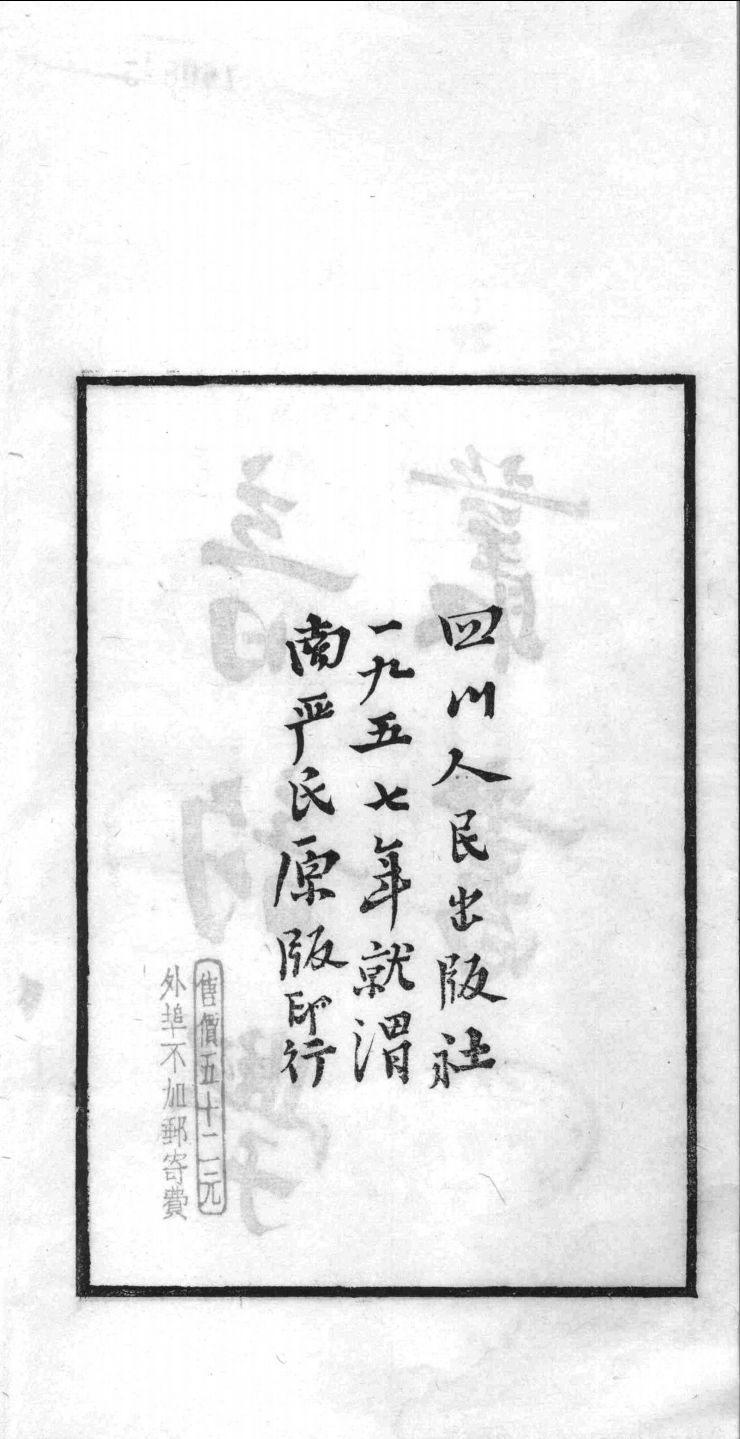 四川人民出版社
一九五七年就渭
南严氏原版印行
售價五十二元
外埠不加郵寄費